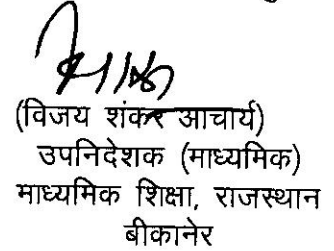 (विजय शंकर आचार्य)
उपनिदेशक (माध्यमिक)
माध्यमिक शिक्षा, राजस्थान
बीकानेर